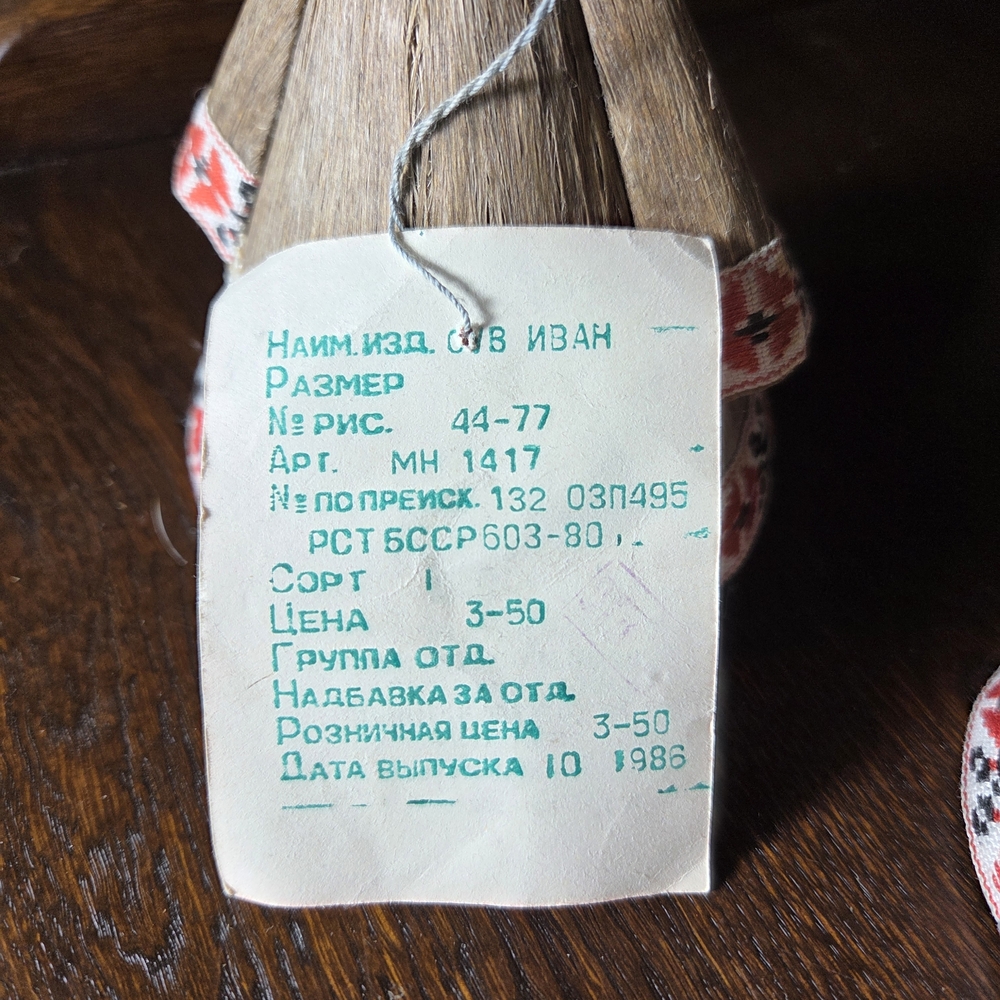 Наим.изд. СУВ ИВАН
Размер
№ рис. 44-77
Арт. МН 1417
№ по преиск. 132 03П495
РСТ БССР 603-80
Сорт 1
Цена 3-50
Группа отд.
Надбавка за отд.
Розничная цена 3-50
Дата выпуска 10 1986